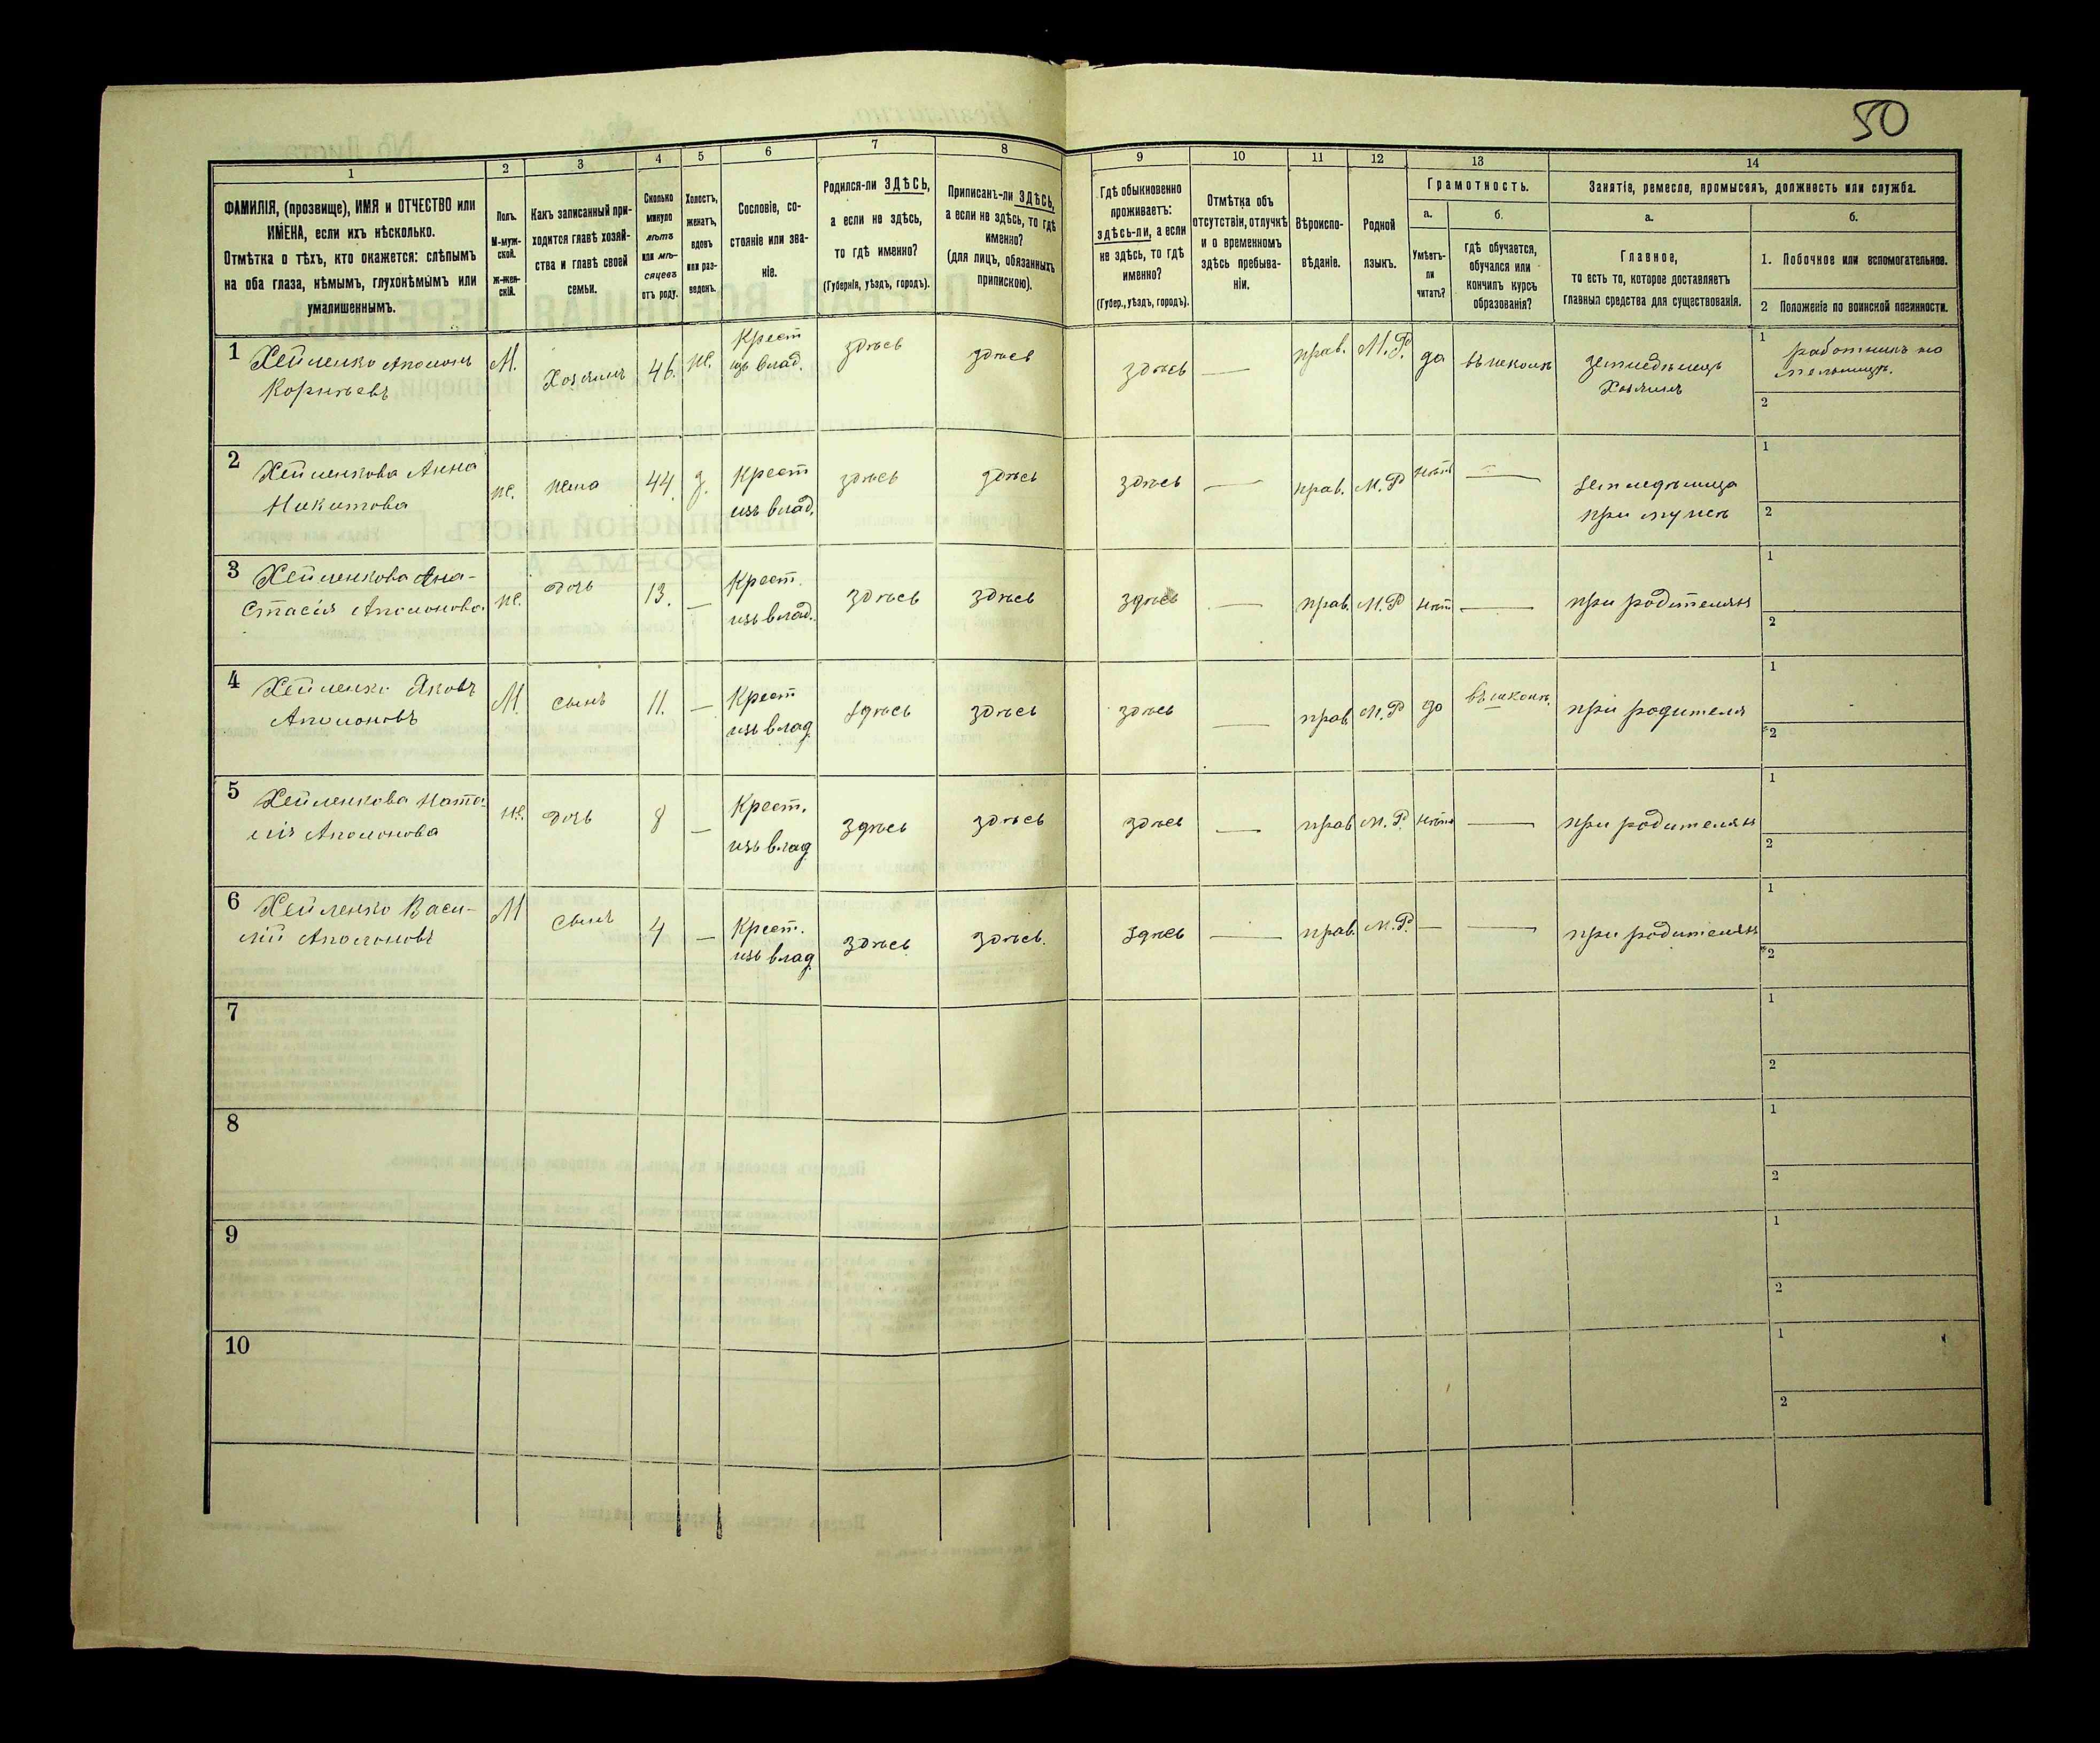 50
1 2 3 4 5 6 7 8 9 10 11 12 13 14
ФАМИЛІЯ, (прозвище), ИМЯ и ОТЧЕСТВО или
ИМЕНА, если ихъ нѣсколько.
Отмѣтка о тѣхъ, кто окажется: слѣпымъ
на оба глаза, нѣмымъ, глухонѣмымъ или
умалишеннымъ.
Полъ.
М-муж-
ской.
ж-жен-
скій.
Какъ записанный при-
ходится главѣ хозяй-
ства и главѣ своей
семьи.
Сколько
минуло
лѣтъ
или мѣ-
сяцевъ
отъ роду.
Холостъ,
женатъ,
вдовъ
или раз-
веденъ.
Сословіе, со-
стояніе или зва-
ніе.
Родился-ли ЗДѢСЬ,
а если не здѣсь,
то гдѣ именно?
(Губернія, уѣздъ, городъ).
Приписанъ-ли ЗДѢСЬ,
а если не здѣсь, то гдѣ
именно?
(для лицъ, обязанныхъ
припискою).
Гдѣ обыкновенно
проживаетъ:
здѣсь-ли, а если
не здѣсь, то гдѣ
именно?
(Губер., уѣздъ, городъ).
Отмѣтка объ
отсутствіи, отлучкѣ
и о временномъ
здѣсь пребыва-
ніи.
Вѣроиспо-
вѣданіе.
Родной
языкъ.
Грамотность.
а. б.
Умѣетъ-
ли
читать?
гдѣ обучается,
обучался или
кончилъ курсъ
образованія?
Занятіе, ремесло, промыселъ, должность или служба.
а. б.
Главное,
то есть то, которое доставляетъ
главныя средства для существованія.
1. Побочное или вспомогательное.
2 Положеніе по воинской повинности.
1 Хейленко Аполонъ М. Хозяинъ 46. же. Крест здѣсь здѣсь здѣсь — прав. М.Р. да въ школѣ земледѣлецъ 1 работникъ на
Корнѣевъ изъ влад. Хозяинъ мельницѣ.
2
2 Хейленкова Анна же. жена 44. з. Крест здѣсь здѣсь здѣсь — прав. М.Р нѣтъ — земледѣлица 1
Никитова изъ влад. при мужѣ 2
3 Хейленкова Ана- же. дочь 13. — Крест. здѣсь здѣсь здѣсь — прав. М.Р нѣт — при родителях 1
стасія Аполонова изъ влад. 2
4 Хейленко Яковъ М. сынъ 11. — Крест здѣсь здѣсь здѣсь — прав. М.Р да въ школѣ. при родителя 1
Аполоновъ изъ влад. 2
5 Хейленкова Ната- же. дочь 8 — Крест. здѣсь здѣсь здѣсь — прав М.Р. нѣтъ — при родителях 1
лія Аполонова изъ влад. 2
6 Хейленко Васи- М сынъ 4 — Крест. здѣсь здѣсь. здѣсь — прав. М.Р. — — при родителях 1
лій Аполоновъ изъ влад. 2
7 1
2
8 1
2
9 1
2
10 1
2